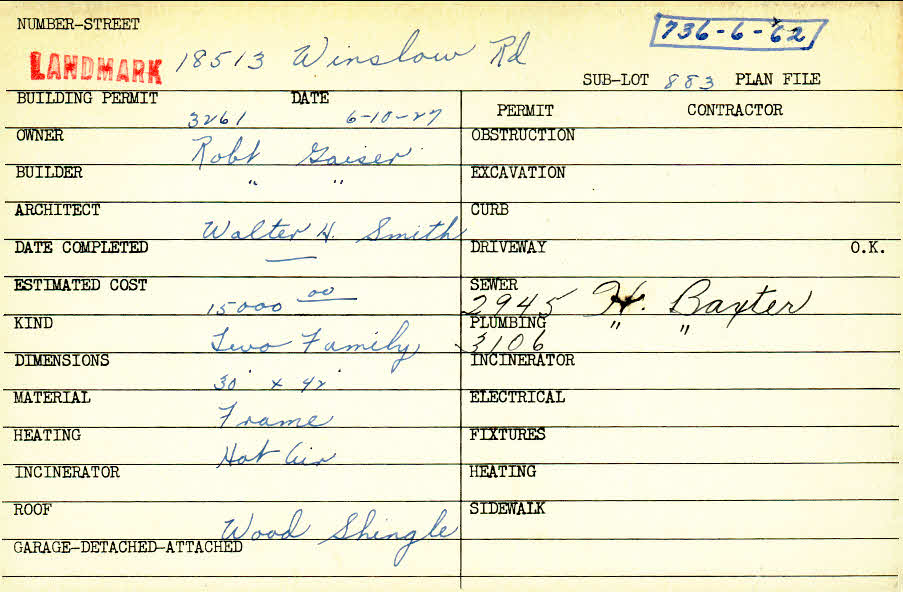 NUMBER-STREET 736-6-62
LANDMARK 18513 Winslow Rd
SUB-LOT 883 PLAN FILE
BUILDING PERMIT DATE PERMIT CONTRACTOR
3261 6-10-27
OWNER OBSTRUCTION
Robt Gaiser
BUILDER EXCAVATION
" "
ARCHITECT CURB
Walter H. Smith
DATE COMPLETED DRIVEWAY O.K.
—
ESTIMATED COST SEWER
15000 00 2945 H. Baxter
KIND PLUMBING " "
Two Family 3106
DIMENSIONS INCINERATOR
30' x 42'
MATERIAL ELECTRICAL
Frame
HEATING FIXTURES
Hot Air
INCINERATOR HEATING
ROOF SIDEWALK
Wood Shingle
GARAGE-DETACHED-ATTACHED